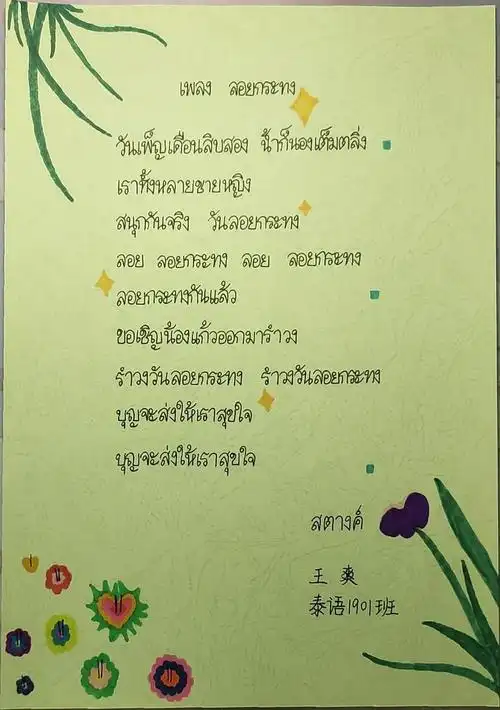 เพลง ลอยกระทง
วันเพ็ญเดือนสิบสอง น้ำก็นองเต็มตลิ่ง
เราทั้งหลายชายหญิง
สนุกกันจริง วันลอยกระทง
ลอย ลอยกระทง ลอย ลอยกระทง
ลอยกระทงกันแล้ว
ขอเชิญน้องแก้วออกมารำวง
รำวงวันลอยกระทง รำวงวันลอยกระทง
บุญจะส่งให้เราสุขใจ
บุญจะส่งให้เราสุขใจ
สตางค์
王爽
泰语1901班